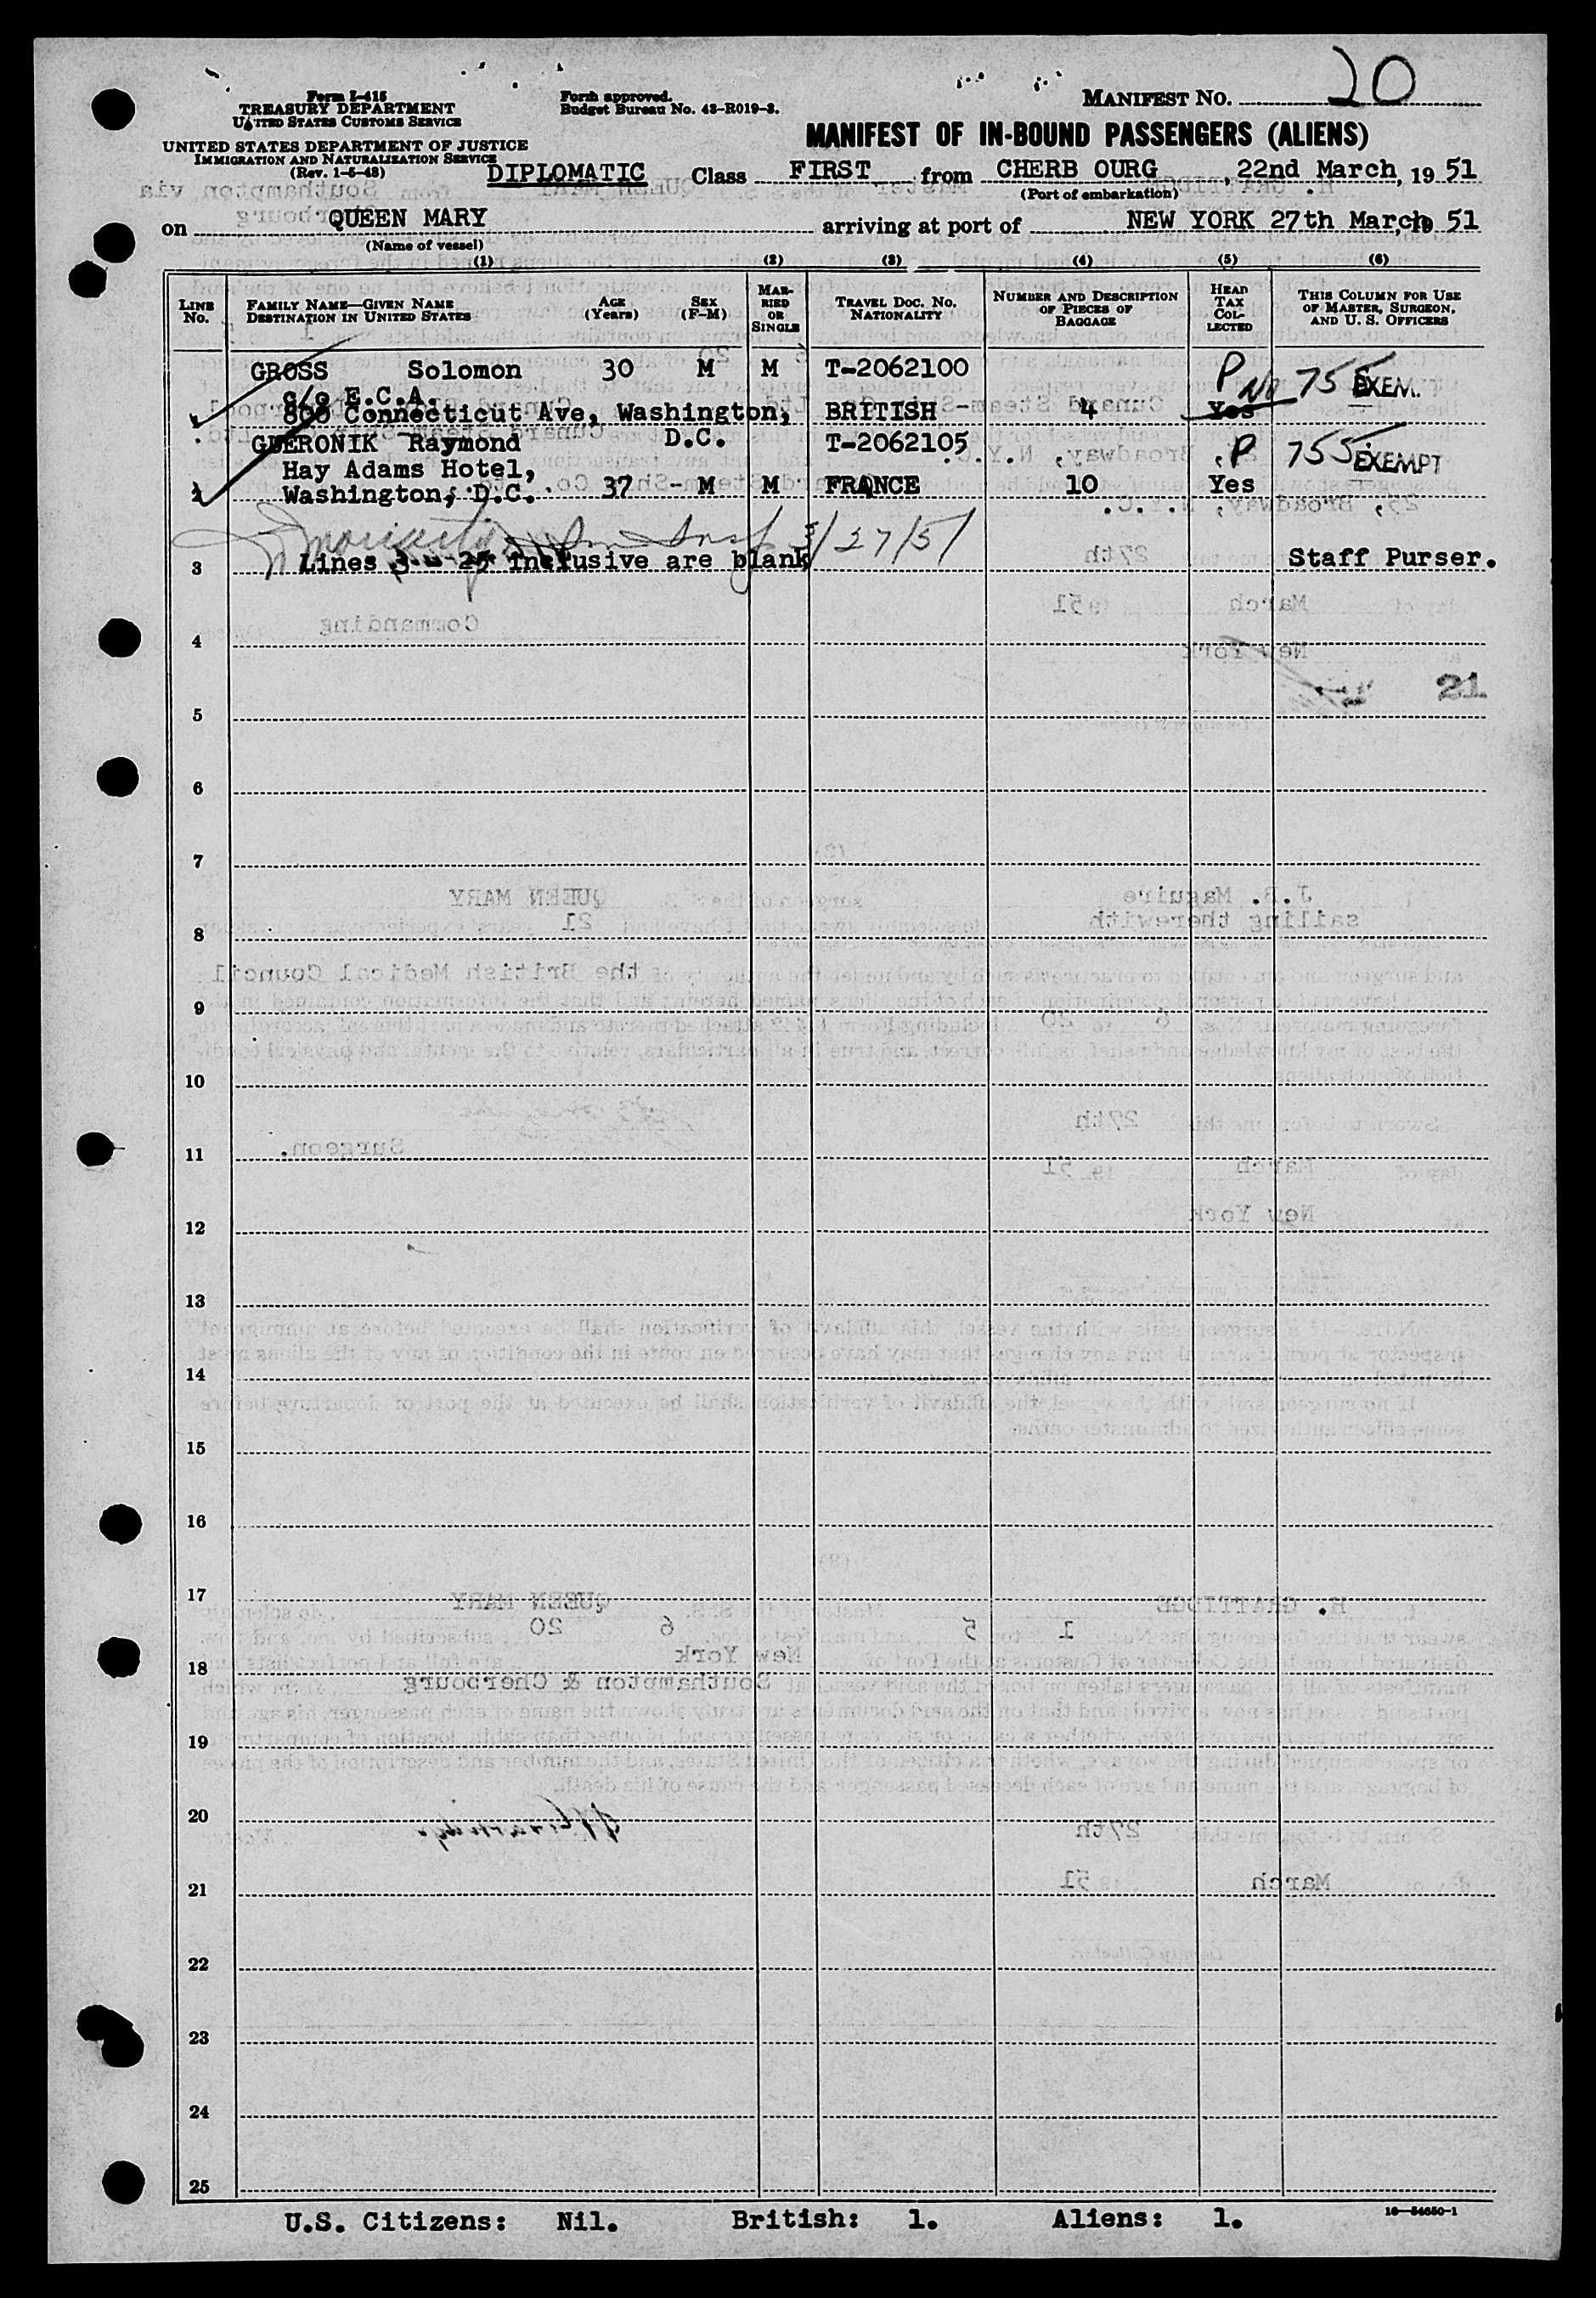 20
Form I-415
TREASURY DEPARTMENT
UNITED STATES CUSTOMS SERVICE
Form approved.
Budget Bureau No. 43-R019-3.
MANIFEST NO.
UNITED STATES DEPARTMENT OF JUSTICE
IMMIGRATION AND NATURALIZATION SERVICE
(Rev. 1-5-48)
MANIFEST OF IN-BOUND PASSENGERS (ALIENS)
DIPLOMATIC Class FIRST from CHERB OURG, 22nd March, 19 51
(Port of embarkation)
on QUEEN MARY arriving at port of NEW YORK 27th March, 19 51
(Name of vessel)
(1) (2) (3) (4) (5) (6)
LINE No.
FAMILY NAME—GIVEN NAME
DESTINATION IN UNITED STATES
AGE (Years)
SEX (F-M)
MARRIED OR SINGLE
TRAVEL DOC. NO.
NATIONALITY
NUMBER AND DESCRIPTION OF PIECES OF BAGGAGE
HEAD TAX COLLECTED
THIS COLUMN FOR USE OF MASTER, SURGEON, AND U. S. OFFICERS
GROSS Solomon 30 M M T-2062100 P No 755 EXEM.
c/o E.C.A.
800 Connecticut Ave, Washington, BRITISH 4 Yes
D.C.
GUERONIK Raymond T-2062105 P 755 EXEMPT
Hay Adams Hotel,
2 Washington, D.C. 37 - M M FRANCE 10 Yes
3/27/51
3 Lines 3 - 25 inclusive are blank Staff Purser.
4
21
5
6
7
8
9
10
11
12
13
14
15
16
17
18
19
20
21
22
23
24
25
U.S. Citizens: Nil. British: 1. Aliens: 1.
16—54650-1